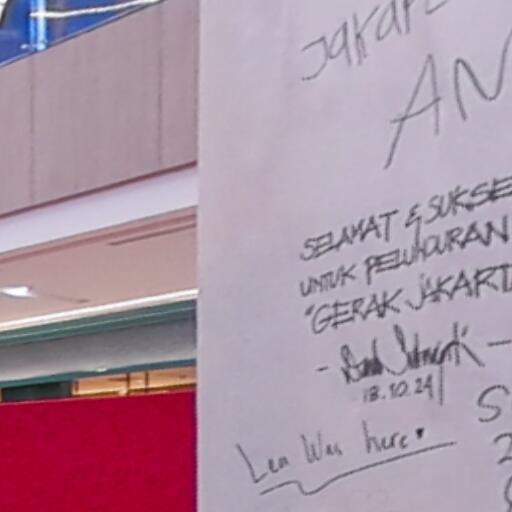 Jakart
AN
SELAMAT & SUKSE
UNTUK PELUNCURAN
"GERAK JAKART
18.10.24
S
2
Lea Was here